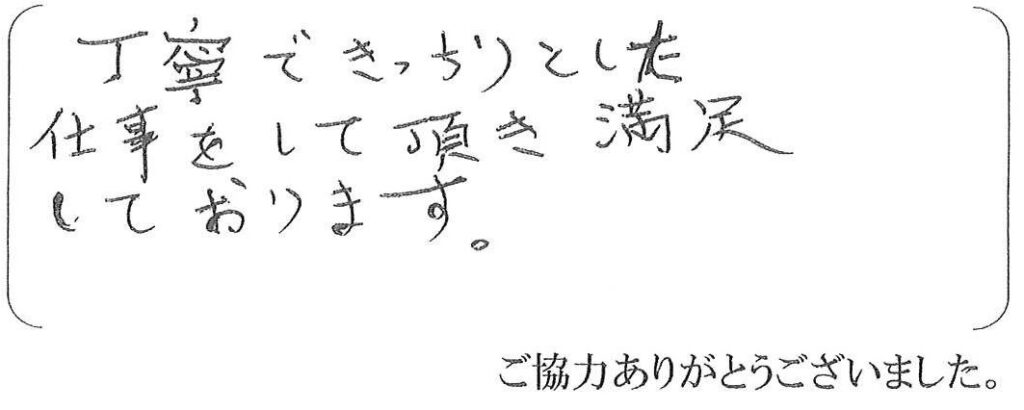 丁寧できっちりとした
仕事をして頂き満足
しております。
ご協力ありがとうございました。